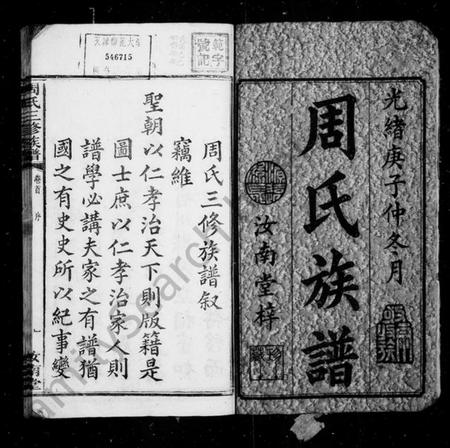 光緒庚子仲冬月
周氏族譜
汝南堂梓
周氏三修族譜叙
竊維
聖朝以仁孝治天下則版籍是
圖士庶以仁孝治家人則
譜學必講夫家之有譜猶
國之有史史所以紀事變
周氏三修族譜
卷首 序
一
汝南堂
546715
範字號記
FamilySearch